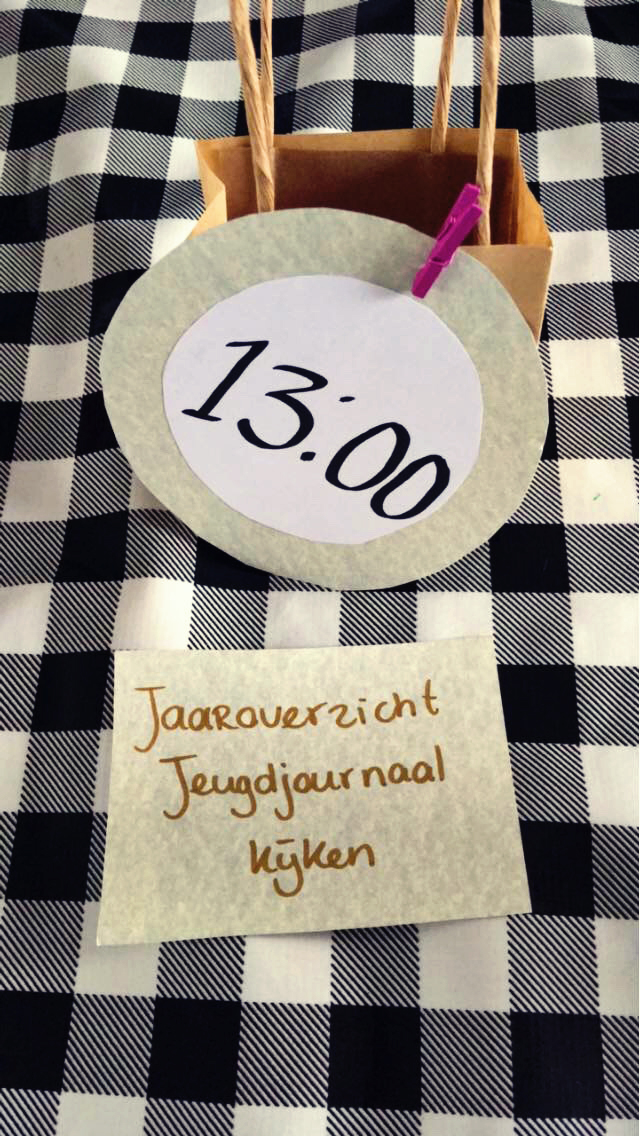 13:00
Jaaroverzicht
Jeugdjournaal
kijken